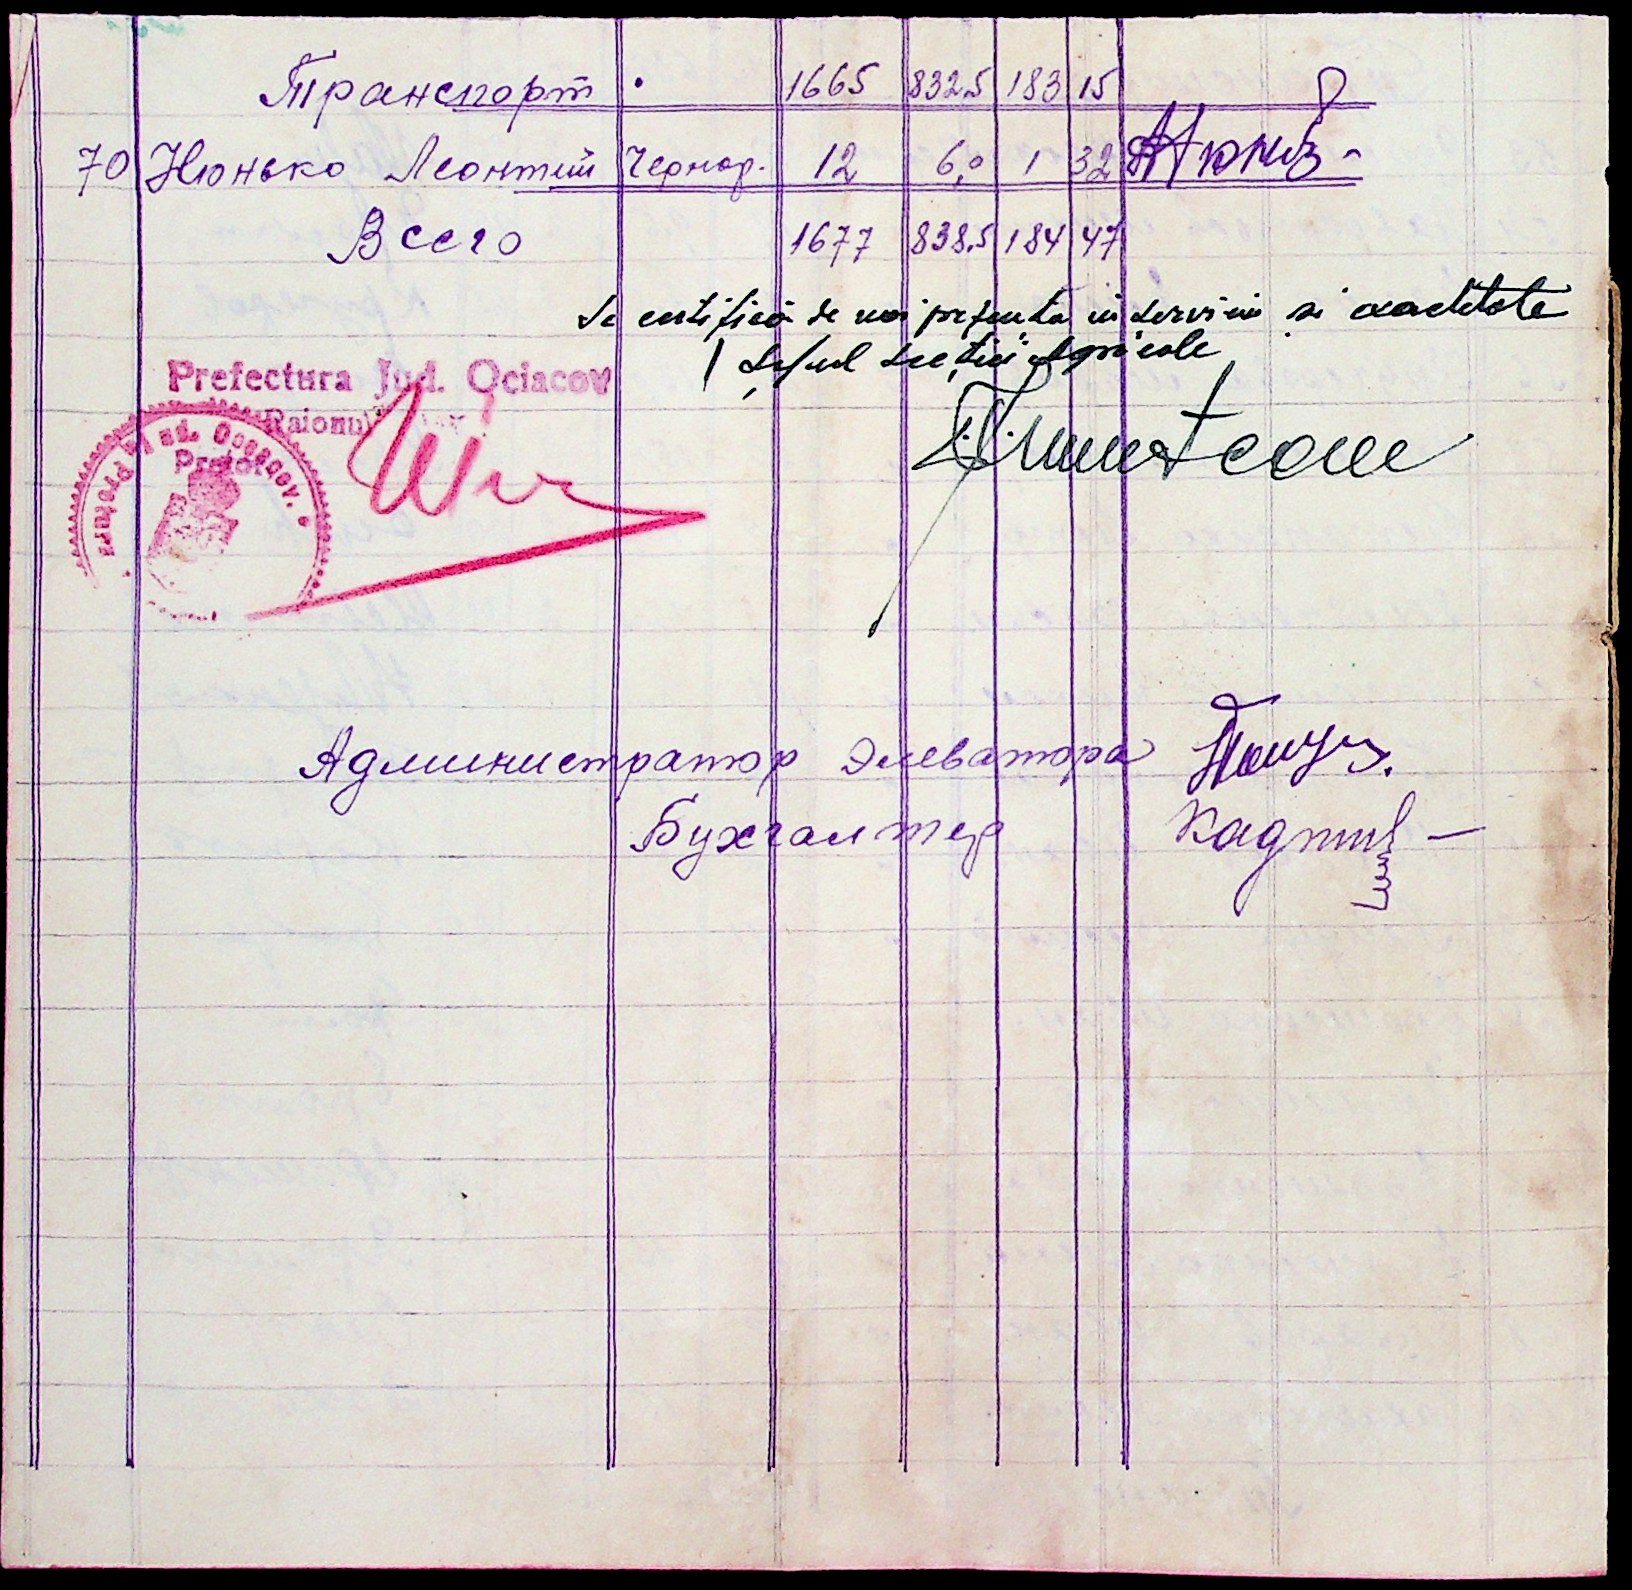 Транспорт . 1665 832.5 183 15
70 Нюнько Леонтий Чернор. 12 6,0 1 32
Всего 1677 838.5 184 47
Se certifică de noi prezenta in serviciu si exactitate
Şeful Secţiei Agricole
Prefectura Jud. Ociacov
Raionul
Pretor
Администратор Элеватора
Бухгалтер